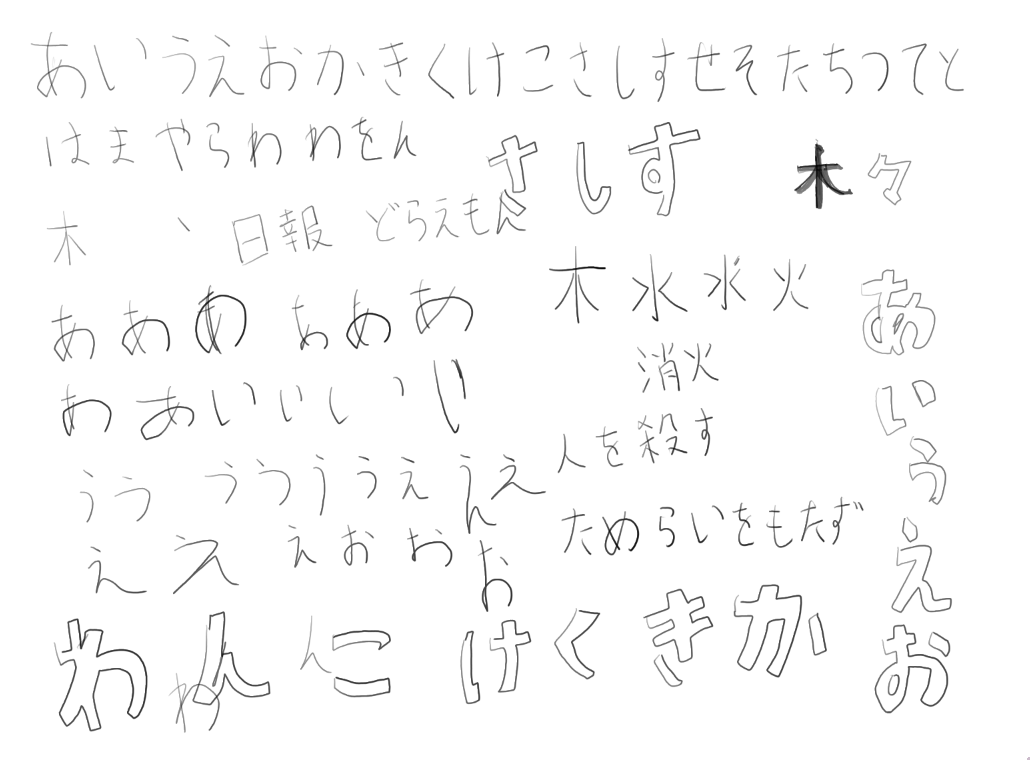 あいうえおかきくけこさしすせそたちつてと
はまやらわわをん
さしす
木々
木、日報 どらえもん
木水水火
あああああめ
消火
わあいいいい
人を殺す
うううつううええ
ためらいをもたず
ええええおおお
あいうえお
わんんこ
けくきか
わ